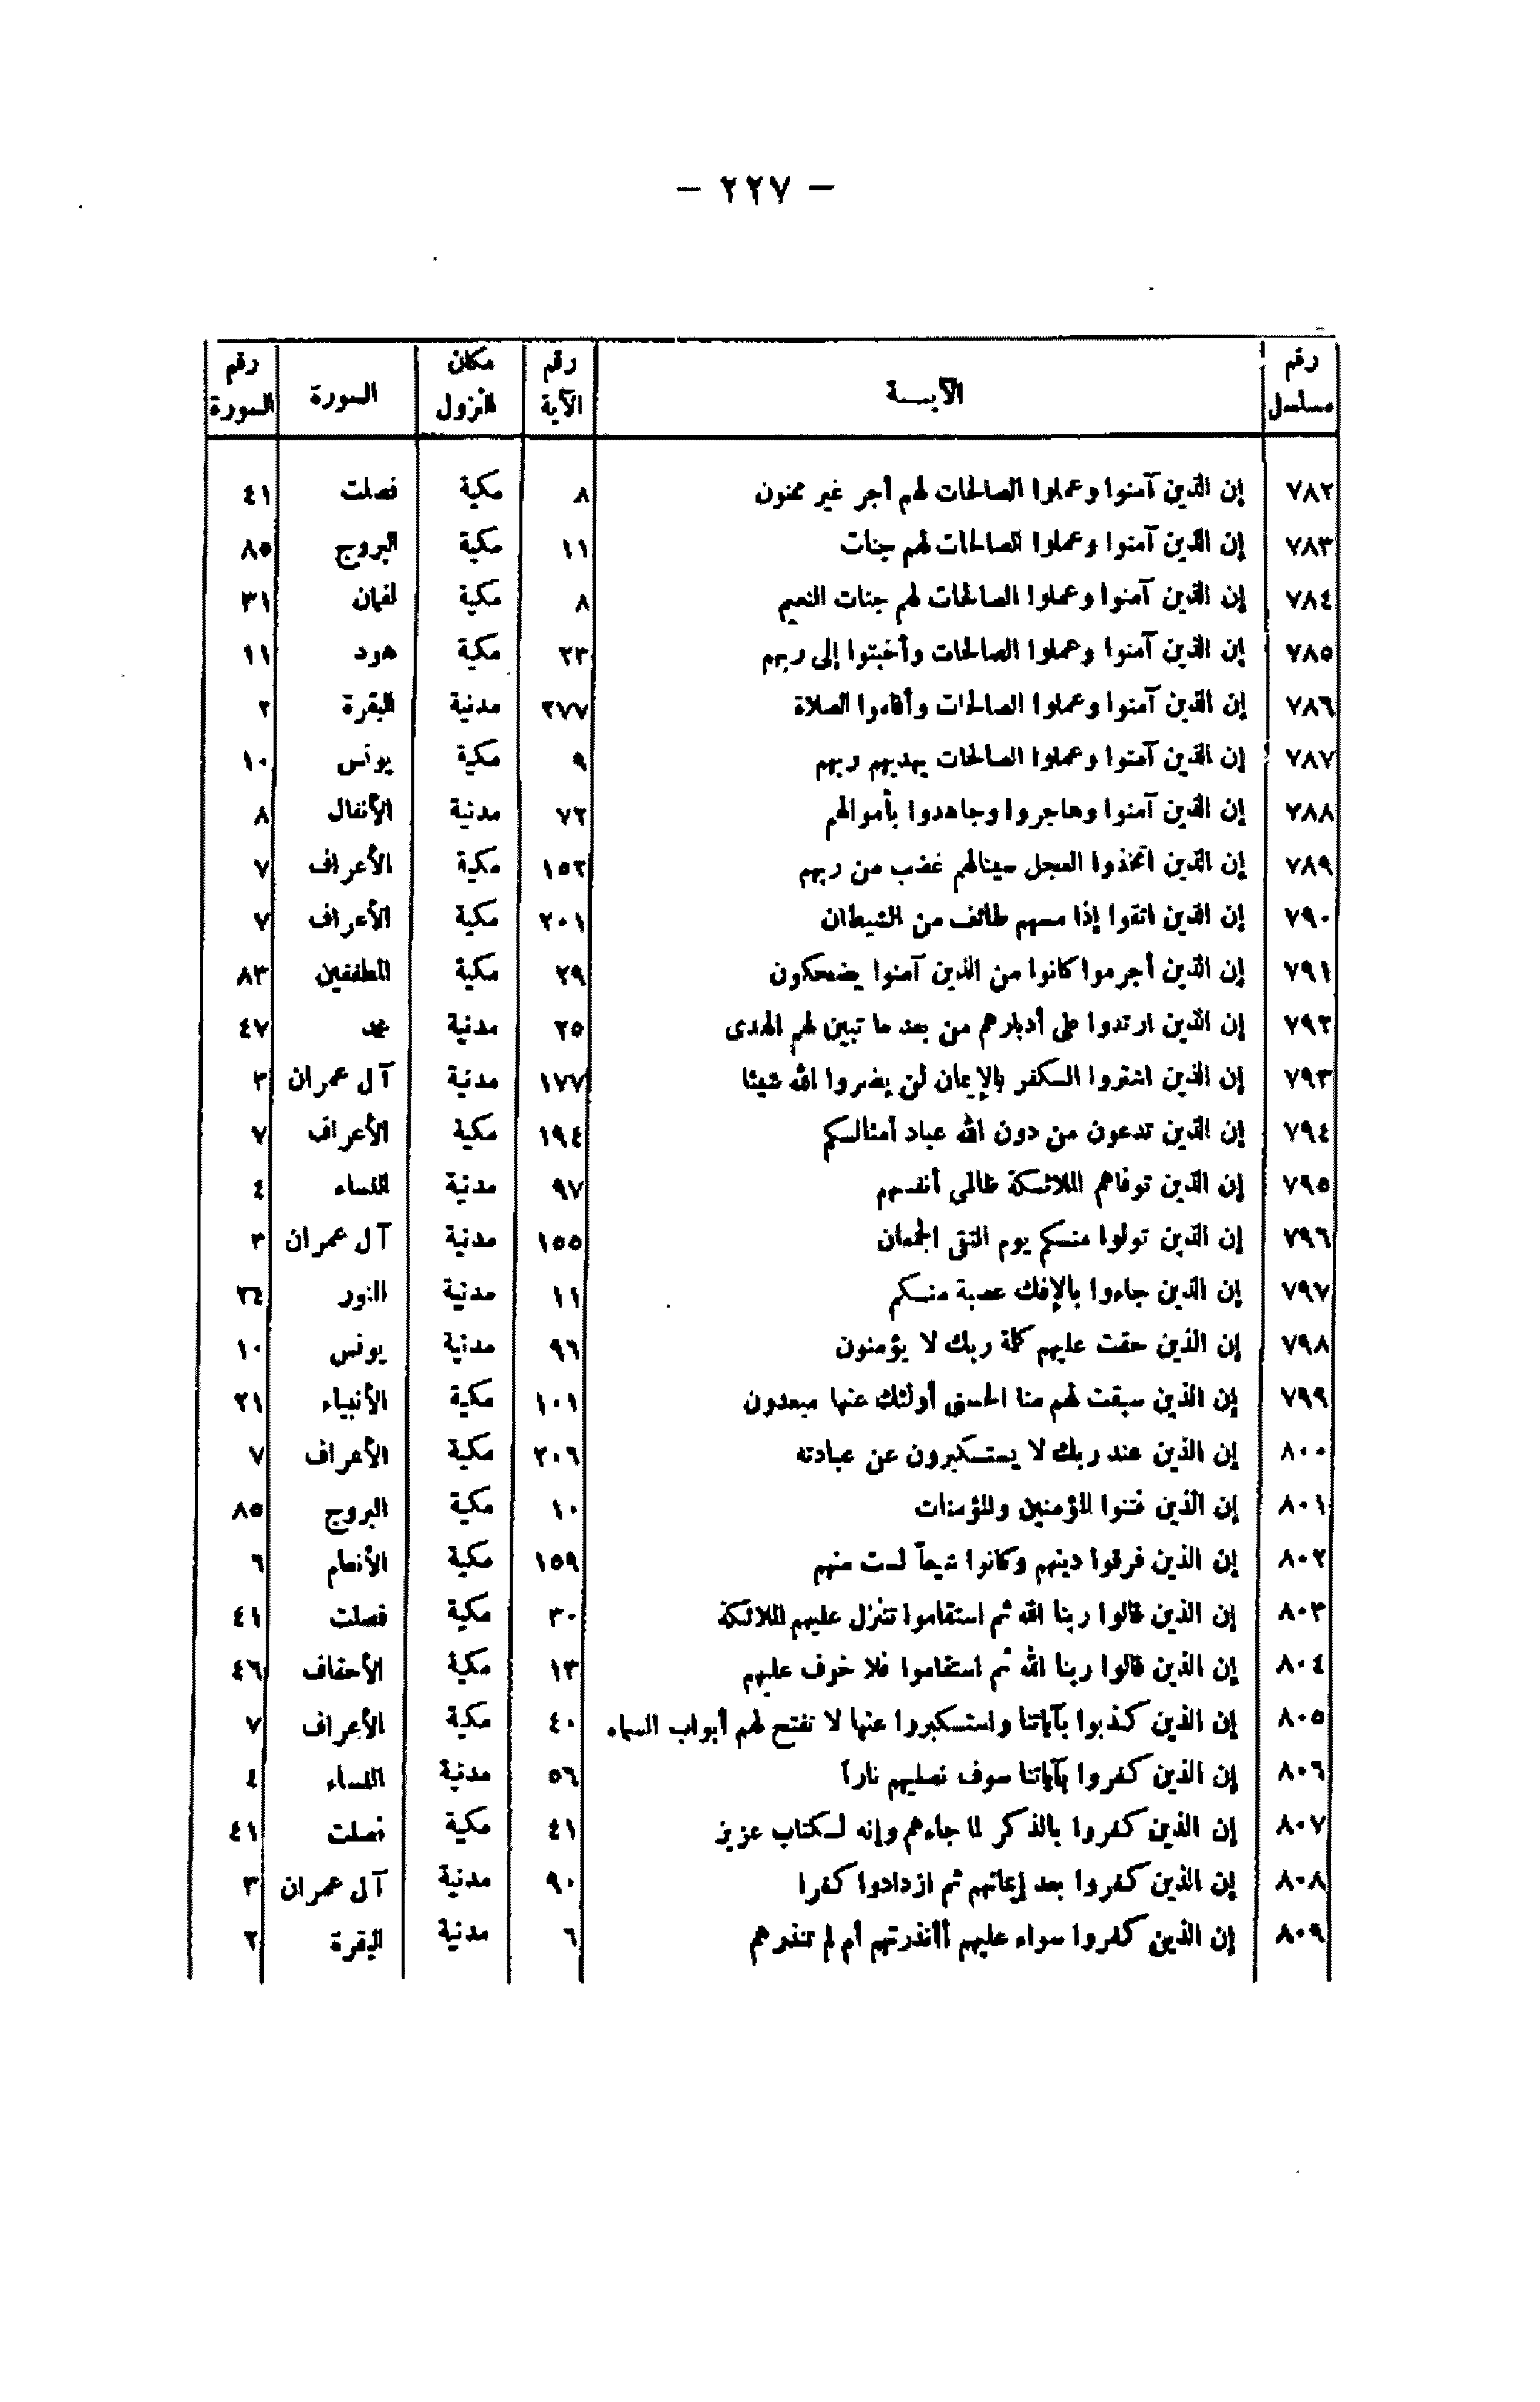 — ٢٢٧ —
رقم مسلسل | الآيـــة | رقم الآية | مكان النزول | السورة | رقم السورة
٧٨٢ | إن الذين آمنوا وعملوا الصالحات لهم أجر غير ممنون | ٨ | مكية | فصلت | ٤١
٧٨٣ | إن الذين آمنوا وعملوا الصالحات لهم جنات | ١١ | مكية | البروج | ٨٥
٧٨٤ | إن الذين آمنوا وعملوا الصالحات لهم جنات النعيم | ٨ | مكية | لقمان | ٣١
٧٨٥ | إن الذين آمنوا وعملوا الصالحات وأخبتوا إلى ربهم | ٢٣ | مكية | هود | ١١
٧٨٦ | إن الذين آمنوا وعملوا الصالحات وأقاموا الصلاة | ٢٧٧ | مدنية | البقرة | ٢
٧٨٧ | إن الذين آمنوا وعملوا الصالحات يهديهم ربهم | ٩ | مكية | يونس | ١٠
٧٨٨ | إن الذين آمنوا وهاجروا وجاهدوا بأموالهم | ٧٢ | مدنية | الأنفال | ٨
٧٨٩ | إن الذين اتخذوا العجل سينالهم غضب من ربهم | ١٥٢ | مكية | الأعراف | ٧
٧٩٠ | إن الذين اتقوا إذا مسهم طائف من الشيطان | ٢٠١ | مكية | الأعراف | ٧
٧٩١ | إن الذين أجرموا كانوا من الذين آمنوا يضحكون | ٢٩ | مكية | المطففين | ٨٣
٧٩٢ | إن الذين ارتدوا على أدبارهم من بعد ما تبين لهم الهدى | ٢٥ | مدنية | محمد | ٤٧
٧٩٣ | إن الذين اشتروا الكفر بالإيمان لن يضروا الله شيئا | ١٧٧ | مدنية | آل عمران | ٣
٧٩٤ | إن الذين تدعون من دون الله عباد أمثالكم | ١٩٤ | مكية | الأعراف | ٧
٧٩٥ | إن الذين توفاهم الملائكة ظالمى أنفسهم | ٩٧ | مدنية | النساء | ٤
٧٩٦ | إن الذين تولوا منكم يوم التقى الجمعان | ١٥٥ | مدنية | آل عمران | ٣
٧٩٧ | إن الذين جاءوا بالإفك عصبة منكم | ١١ | مدنية | النور | ٢٤
٧٩٨ | إن الذين حقت عليهم كلمة ربك لا يؤمنون | ٩٦ | مدنية | يونس | ١٠
٧٩٩ | إن الذين سبقت لهم منا الحسنى أولئك عنها مبعدون | ١٠١ | مكية | الأنبياء | ٢١
٨٠٠ | إن الذين عند ربك لا يستكبرون عن عبادته | ٢٠٦ | مكية | الأعراف | ٧
٨٠١ | إن الذين فتنوا المؤمنين والمؤمنات | ١٠ | مكية | البروج | ٨٥
٨٠٢ | إن الذين فرقوا دينهم وكانوا شيعاً لست منهم | ١٥٩ | مكية | الأنعام | ٦
٨٠٣ | إن الذين قالوا ربنا الله ثم استقاموا تتنزل عليهم الملائكة | ٣٠ | مكية | فصلت | ٤١
٨٠٤ | إن الذين قالوا ربنا الله ثم استقاموا فلا خوف عليهم | ١٣ | مكية | الأحقاف | ٤٦
٨٠٥ | إن الذين كذبوا بآياتنا واستكبروا عنها لا تفتح لهم أبواب السماء | ٤٠ | مكية | الأعراف | ٧
٨٠٦ | إن الذين كفروا بآياتنا سوف نصليهم ناراً | ٥٦ | مدنية | النساء | ٤
٨٠٧ | إن الذين كفروا بالذكر لما جاءهم وإنه لكتاب عزيز | ٤١ | مكية | فصلت | ٤١
٨٠٨ | إن الذين كفروا بعد إيمانهم ثم ازدادوا كفرا | ٩٠ | مدنية | آل عمران | ٣
٨٠٩ | إن الذين كفروا سواء عليهم أأنذرتهم أم لم تنذرهم | ٦ | مدنية | البقرة | ٢